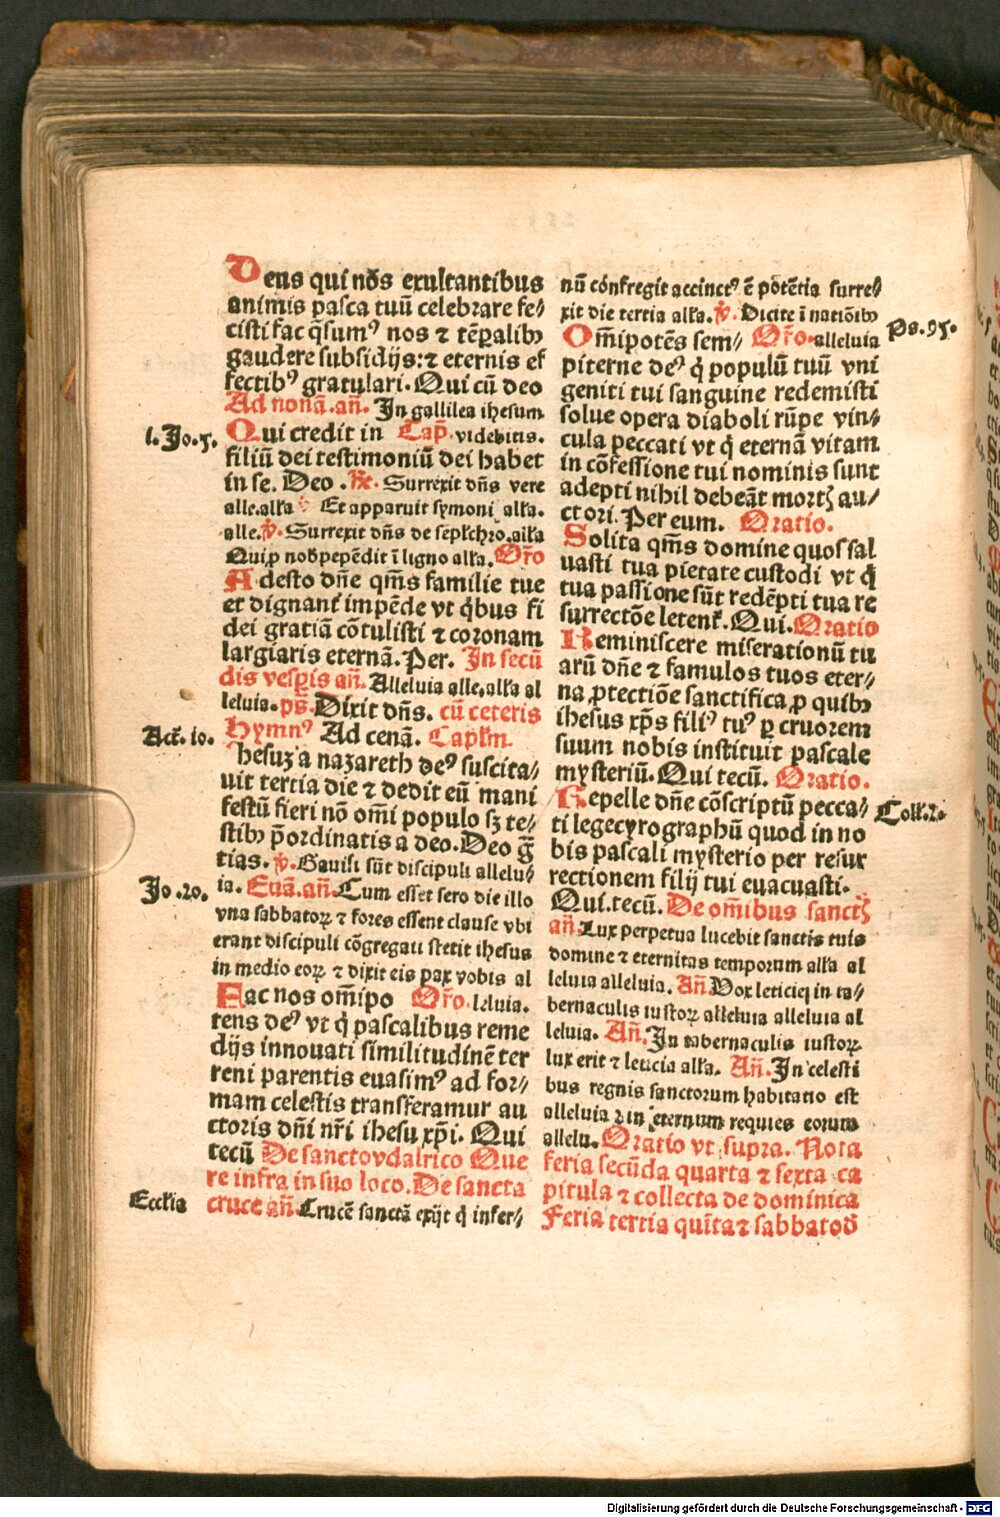 Deus qui nōs exultantibus
animis pasca tuū celebrare fe/
cisti fac q̄sumꝰ nos ⁊ tēꝑalibꝫ
gaudere subsidijs: ⁊ eternis ef
fectibꝰ gratulari. Qui cū deo
Ad nonā. an̄. In gallilea ihesum
l. Jo. 5.
Qui credit in Cap̄. videbitis.
filiū dei testimoniū dei habet
in se. Deo. ℟. Surrexit dn̄s vere
alle. alł'a ℣. Et apparuit symoni alł'a.
alle. ℣. Surrexit dn̄s de sepłchro. alł'a
Qui ꝓ nob̄ pepēdit ī ligno alł'a. Or̄o
Adesto dn̄e qm̄s familie tue
et dignanť impēde vt q̇bus fi
dei gratiā cōtulisti ⁊ coronam
largiaris eternā. Per. In secū
dis vesꝑis an̄. Alleluia alle. alł'a al
leluia. ps̄. Dixit dn̄s. cū ceteris
Hymnꝰ Ad cenā. Capłm
Act. 10.
Ihesuꝫ a nazareth deꝰ suscita/
uit tertia die ⁊ dedit eū mani
festū fieri nō om̄i populo sꝫ te/
stibꝫ p̄ordinatis a deo. Deo gr̄
tias. ℣. Gauisi sūt discipuli allelu/
Jo. 20.
ia. Euā. an̄. Cum esset sero die illo
vna sabbatoꝝ ⁊ fores essent clause vbi
erant discipuli cōgregati stetit ihesus
in medio eoꝝ ⁊ dixit eis pax vobis al
Fac nos om̄ipo Or̄o. leluia.
tens deꝰ vt q̇ pascalibus reme
dijs innouati similitudinē ter
reni parentis euasimꝰ ad for/
mam celestis transferamur au
ctoris dn̄i nr̄i ihesu xp̄i. Qui
tecū De sancto vdalrico Que
re infra in suo loco. De sancta
Ecclia
cruce an̄. Crucē sanctā exijt q̇ infer/
nū confregit accinctꝰ ē potētia surre/
xit die tertia alł'a. ℣. Dicite ī natiōibꝫ
Ps. 95.
Om̄ipotēs sem/ Or̄o. alleluia
piterne deꝰ q̇ populū tuū vni
geniti tui sanguine redemisti
solue opera diaboli rūpe vin/
cula peccati vt q̇ eternā vitam
in cōfessione tui nominis sunt
adepti nihil debeāt mortꝭ au/
ctori. Per eum. Oratio.
Solita qm̄s domine quos sal
uasti tua pietate custodi vt q̇
tua passione sūt redēpti tua re
surrectōe letenť. Qui. Oratio
Reminiscere miserationū tu
arū dn̄e ⁊ famulos tuos eter/
na ꝓtectiōe sanctifica ꝓ quibꝫ
ihesus xp̄s filiꝰ tuꝰ ꝑ cruorem
suum nobis instituit pascale
mysteriū. Qui tecū. Oratio.
Repelle dn̄e cōscriptū pecca/
Coll. 2.
ti lege cyrographū quod in no
bis pascali mysterio per resur
rectionem filij tui euacuasti.
Qui. tecū. De om̄ibus sanctꝭ
an̄. Lux perpetua lucebit sanctis tuis
domine ⁊ eternitas temporum alł'a al
leluia alleluia. An̄. Vox leticie ī in ta/
bernaculis iustoꝝ alleluia alleluia al
leluia. An̄. In tabernaculis iustoꝝ
lux erit ⁊ leticia alł'a. An̄. In celesti
bus regnis sanctorum habitatio est
alleluia ⁊ in eternum requies eorum
allelu. Oratio vt supra. Nota
feria secūda quarta ⁊ sexta ca
pitula ⁊ collecta de dominica
Feria tertia quīta ⁊ sabbato d̄
Digitalisierung gefördert durch die Deutsche Forschungsgemeinschaft - DFG